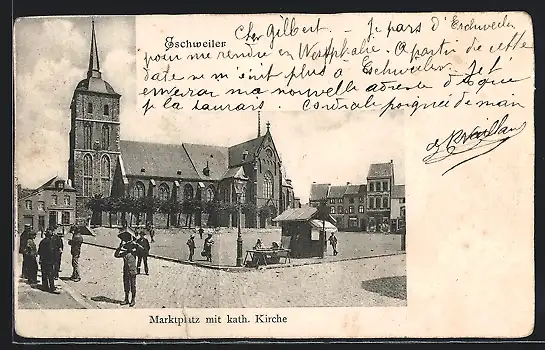 Eschweiler
Cher Gilbert. — Je pars d'Eschweiler
pour me rendre en Westphalie. A partir de cette
date ne m'écris plus à Eschweiler. Je t'
enverrai ma nouvelle adresse dès que
je la saurais. Cordiale poignée de main
Marktplatz mit kath. Kirche